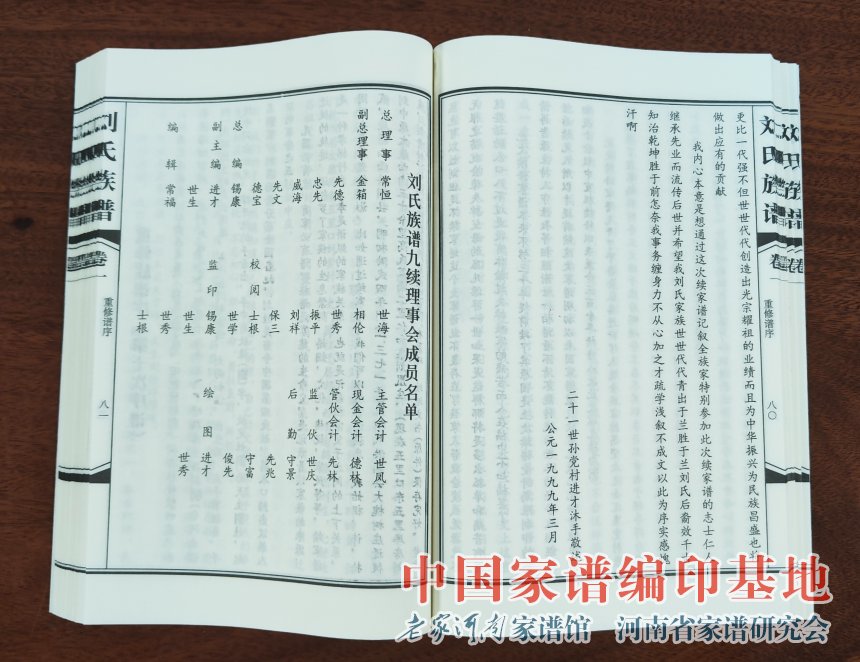 刘氏族谱
卷一
重修谱序
八〇
更比一代强不但世世代代创造出光宗耀祖的业绩而且为中华振兴为民族昌盛也将
做出应有的贡献
我内心本意是想通过这次续家谱记叙全族家特别参加此次续家谱的志士仁人
继承先业而流传后世并希望我刘氏家族世世代代青出于兰胜于兰刘氏后裔效千古
知治乾坤胜于前怎奈我事务缠身力不从心加之才疏学浅叙不成文以此为序实感愧
汗啊
二十一世孙党村进才沐手敬
公元一九九九年三月
刘氏族谱九续理事会成员名单
总理事 常恒 世海 主管会计 世凤
副总理事 金箱 相伦 现金会计 德林
先德 世秀 管伙会计 先林
忠先 振平 监伙 世庆
威海 刘祥 后勤 守景
先文 保三 先兆
德宝 校阅 士根 守富
总编 锡康 世学 俊先
副主编 进才 监印 锡康 绘图 进才
世生 世生 世秀
编辑 常福 世秀
士根
刘氏族谱
卷一
重修谱序
八一
中国家谱编印基地
老家河南家谱馆 河南省家谱研究会